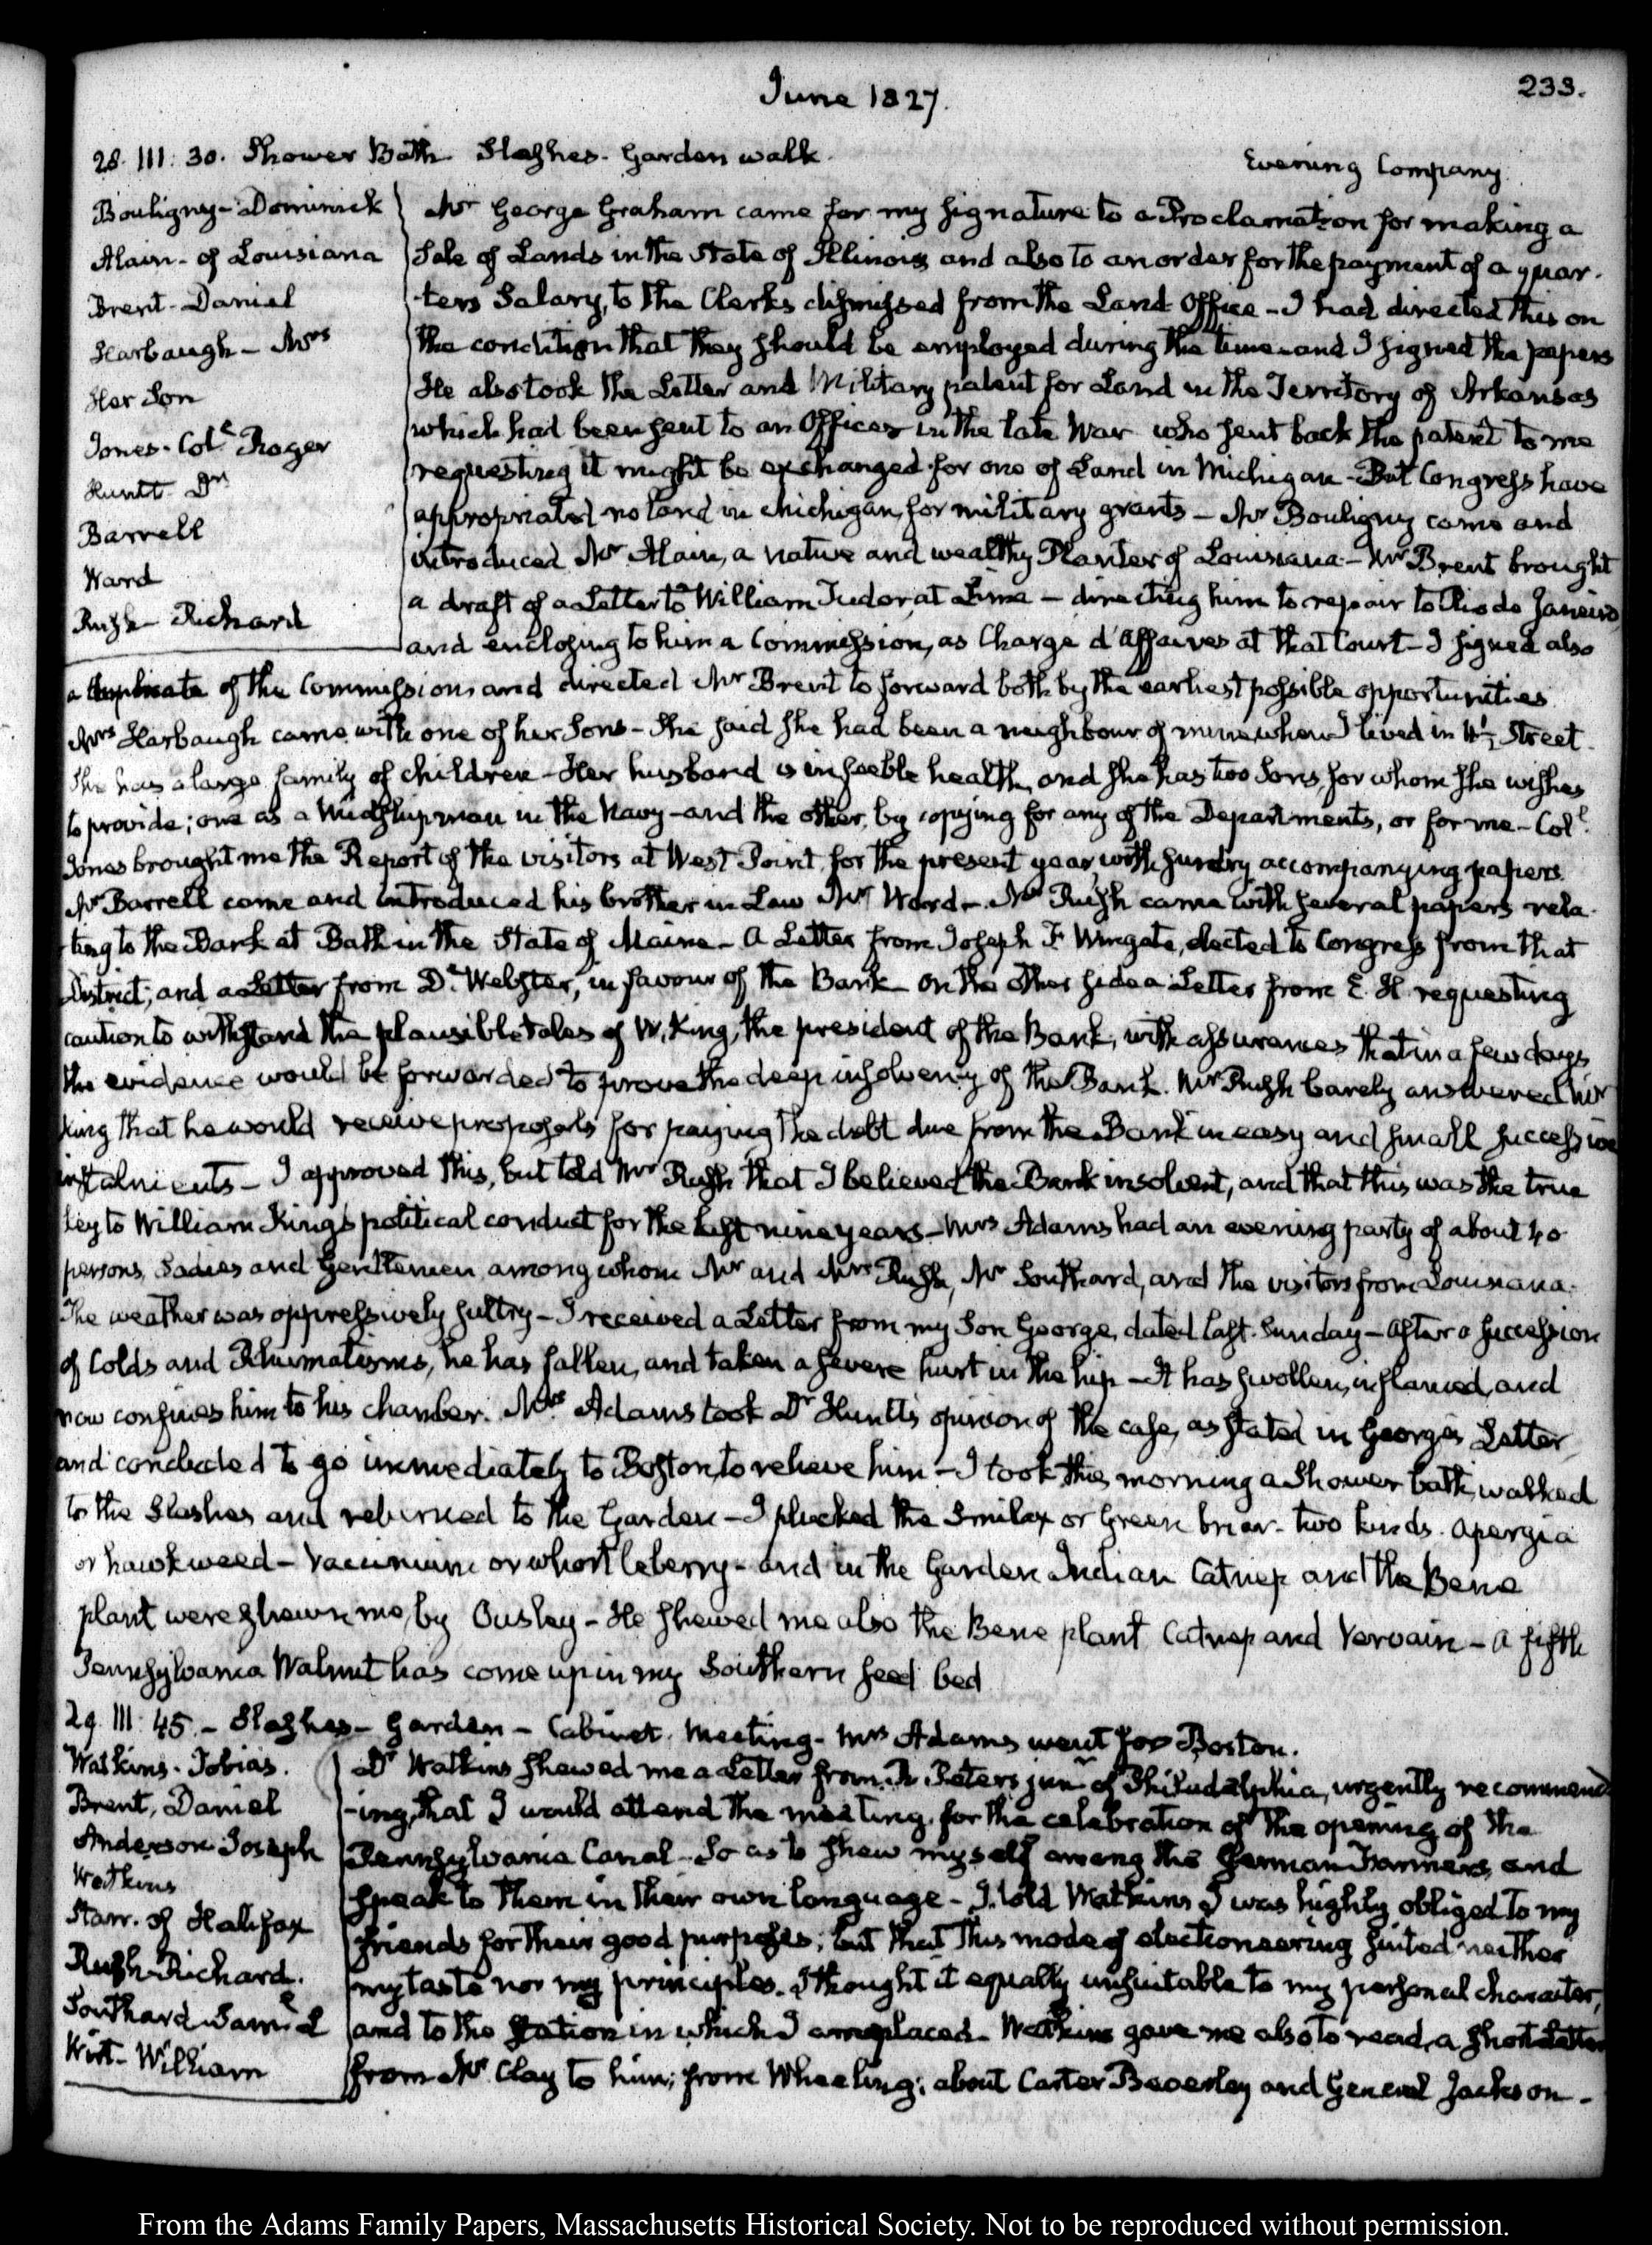 June 1827.
233.
28. III: 30. Shower Bath. Slashes. Garden walk.
Evening Company.
Bouligny - Dominick
Alain - of Louisiana
Brent - Daniel
Harbaugh - Mrs
Her Son
Jones. Coll. Roger
Huntt Dr
Barrell
Ward
Rush - Richard
Mr George Graham came for my signature to a Proclamation for making a
Sale of Lands in the State of Illinois and also to an order for the payment of a quar-
-ters Salary, to the Clerks dismissed from the Land Office - I had directed this on
the condition that they should be employed during the time - and I signed the papers
He also took the Letter and Military patent for Land in the Territory of Arkansas
which had been sent to an Officer in the late War who sent back the patent to me
requesting it might be exchanged for one of Land in Michigan - But Congress have
appropriated no land in Michigan, for military grants - Mr Bouligny came and
introduced Mr Alain, a native and wealthy Planter of Louisiana - Mr Brent brought
a draft of a Letter to William Tudor at Lima - directing him to repair to Rio de Janeiro,
and enclosing to him a Commission, as Charge d'Affaires at that Court - I signed also
a duplicate of the Commission and directed Mr Brent to forward both by the earliest possible opportunities
Mrs Harbaugh came with one of her Sons - She said she had been a neighbour of mine when I lived in 4½ Street.
She has a large family of children - Her husband is in feeble health, and she has two Sons, for whom she wishes
to provide; one as a Midshipman in the Navy - and the other, by copying for any of the Departments, or for me - Coll.
Jones brought me the Report of the visitors at West Point, for the present year, with sundry accompanying papers.
Mr Barrell came and introduced his brother in Law Mr Ward - Mr Rush came with several papers rela-
-ting to the Bank at Bath in the State of Maine - A Letter from Joseph F. Wingate, elected to Congress from that
District; and a Letter from D. Webster, in favour of the Bank - On the other side a Letter from E. H. requesting
caution to withstand the plausible tales of W. King, the president of the Bank, with assurances that in a few days
the evidence would be forwarded to prove the deep insolvency of the Bank. Mr Rush barely answered Mr
King that he would receive proposals for paying the debt due from the Bank in easy and small successive
instalments - I approved this, but told Mr Rush that I believed the Bank insolvent, and that this was the true
key to William King's political conduct for the last nine years - Mrs Adams had an evening party of about 40
persons, Ladies and Gentlemen among whom Mr and Mrs Rush, Mr Southard, and the visitors from Louisiana.
The weather was oppressively sultry - I received a Letter from my Son George, dated last Sunday - After a succession
of Colds and Rhumatisms, he has fallen, and taken a severe hurt in the hip - It has swollen, inflamed, and
now confines him to his chamber. Mrs Adams took Dr Huntt's opinion of the case, as stated in George's Letter,
and concluded to go immediately to Boston, to relieve him - I took this morning a Shower bath, walked
to the Slashes and returned to the Garden - I plucked the Smilax or Green briar - two kinds. Apargia
or hawkweed - Vaccinium or whortleberry - and in the Garden Indian Catnep and the Bene
plant were shewn me, by Ousley - He shewed me also the Bene plant Catnep and Vervain - A fifth
Pennsylvania Walnut has come up in my Southern seed bed
29. III: 45. - Slashes - Garden - Cabinet Meeting - Mrs Adams went for Boston.
Watkins. Tobias.
Brent, Daniel
Anderson Joseph
Watkins
Starr. of Hallifax
Rush Richard.
Southard Samuel L
Wirt - William
Dr Watkins shewed me a Letter from R. Peters junr of Philadelphia, urgently recommend-
-ing, that I would attend the meeting, for the celebration of the opening of the
Pennsylvania Canal - So as to shew myself among the German Farmers, and
speak to them in their own language - I told Watkins I was highly obliged to my
friends for their good purposes; but that this mode of electioneering suited neither
my taste nor my principles. I thought it equally unsuitable to my personal character,
and to the station in which I am placed - Watkins gave me also to read, a short Letter
from Mr Clay to him; from Wheeling; about Carter Beverley and General Jackson -
From the Adams Family Papers, Massachusetts Historical Society. Not to be reproduced without permission.